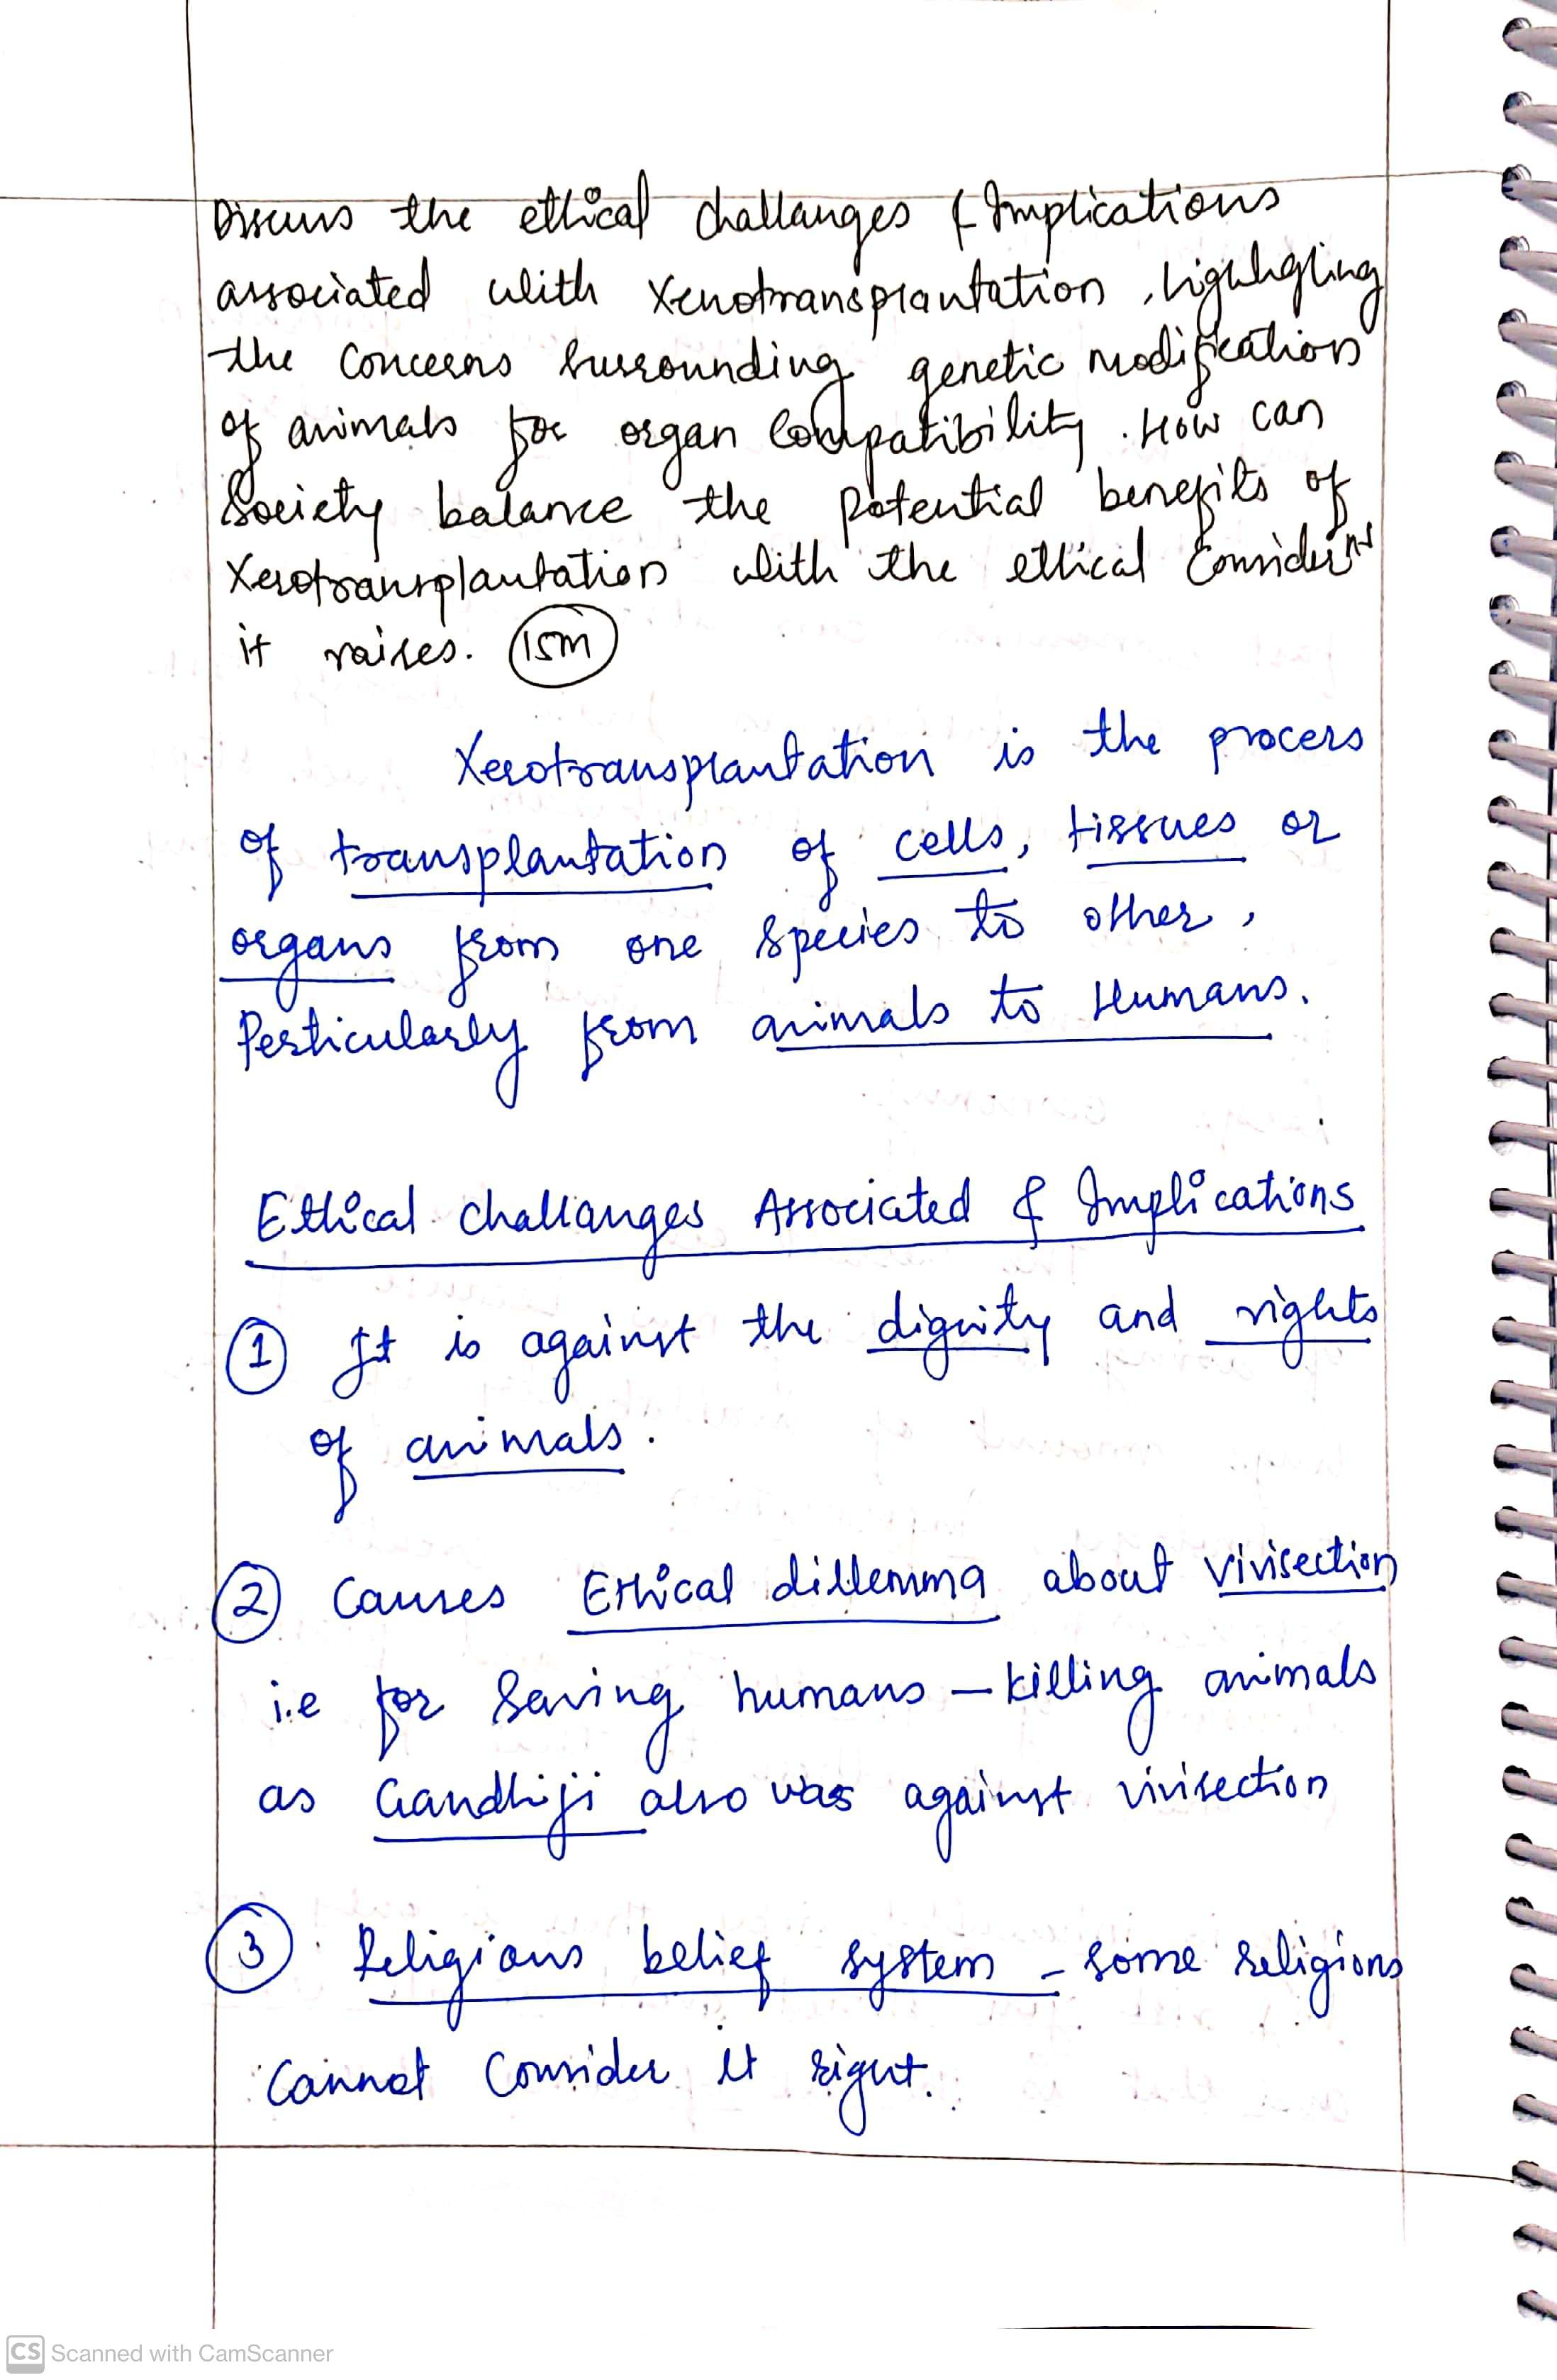 Discuss the ethical challanges & Implications
associated with Xenotransplantation, highlighting
the concerns surrounding genetic modification
of animals for organ compatibility. How can
Society balance the potential benefits of
Xenotransplantation with the ethical Considerns
it raises. 15m
Xenotransplantation is the process
of transplantation of cells, tissues or
organs from one species to other,
Perticularly from animals to Humans.
Ethical challanges Associated & Implications
1 It is against the dignity and rights
of animals.
2 Causes Ethical dillemma about vivisection
i.e for saving humans - killing animals
as Gandhiji also was against vivisection
3 Religious belief system - some religions
Cannot Consider it right.
CS Scanned with CamScanner